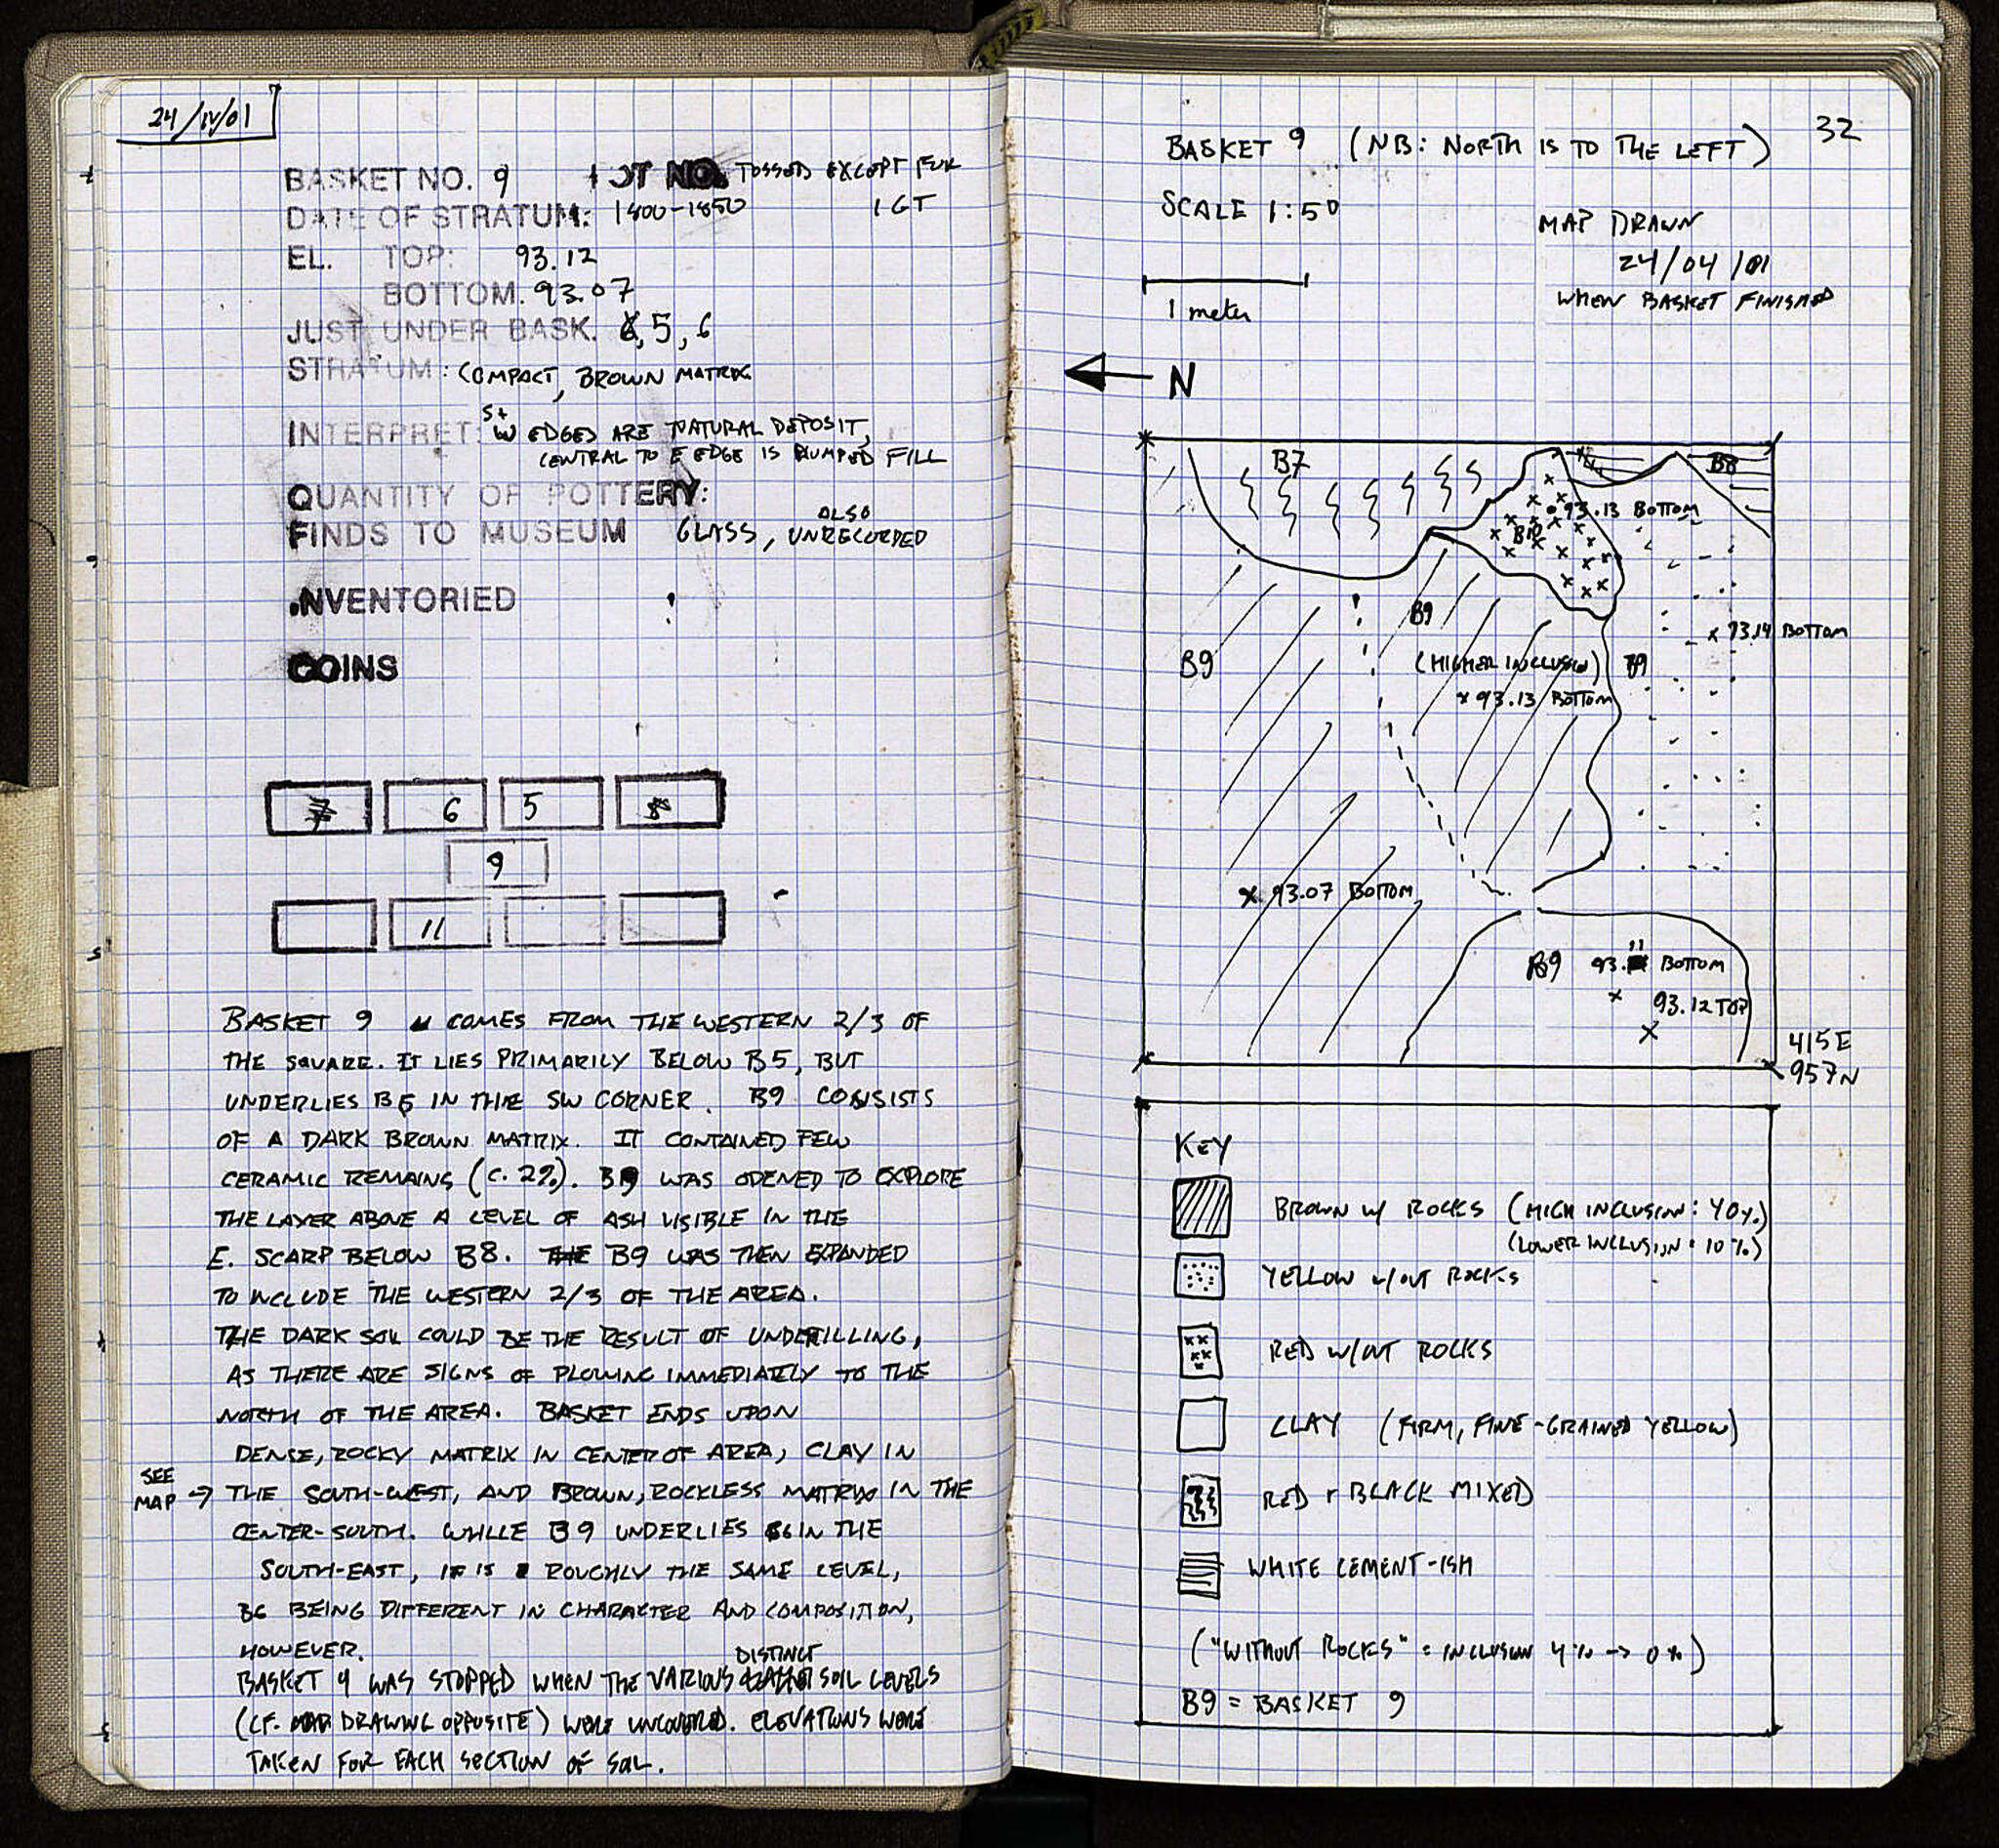 24/IV/01
BASKET NO. 9 LOT NO. TOSSED EXCEPT FOR
DATE OF STRATUM: 1800-1850 1 GT
EL. TOP: 93.12
BOTTOM. 93.07
JUST UNDER BASK. 5, 6
STRATUM: COMPACT, BROWN MATRIX
INTERPRET: S+W EDGES ARE NATURAL DEPOSIT,
CENTRAL TO E EDGE IS DUMPED FILL
QUANTITY OF POTTERY:
FINDS TO MUSEUM GLASS, ALSO UNRECORDED
INVENTORIED
COINS
7 6 5 8
9
11
BASKET 9 COMES FROM THE WESTERN 2/3 OF
THE SQUARE. IT LIES PRIMARILY BELOW B5, BUT
UNDERLIES B6 IN THE SW CORNER. B9 CONSISTS
OF A DARK BROWN MATRIX. IT CONTAINED FEW
CERAMIC REMAINS (C. 2%). B9 WAS OPENED TO EXPLORE
THE LAYER ABOVE A LEVEL OF ASH VISIBLE IN THE
E. SCARP BELOW B8. B9 WAS THEN EXPANDED
TO INCLUDE THE WESTERN 2/3 OF THE AREA.
THE DARK SOIL COULD BE THE RESULT OF UNDERTILLING,
AS THERE ARE SIGNS OF PLOWING IMMEDIATELY TO THE
NORTH OF THE AREA. BASKET ENDS UPON
DENSE, ROCKY MATRIX IN CENTER OF AREA, CLAY IN
SEE MAP → THE SOUTH-WEST, AND BROWN, ROCKLESS MATRIX IN THE
CENTER-SOUTH. WHILE B9 UNDERLIES B6 IN THE
SOUTH-EAST, IT IS ROUGHLY THE SAME LEVEL,
B6 BEING DIFFERENT IN CHARACTER AND COMPOSITION,
HOWEVER.
BASKET 9 WAS STOPPED WHEN THE VARIOUS DISTINCT SOIL LEVELS
(CF. DRAWING OPPOSITE) WERE UNCOVERED. ELEVATIONS WERE
TAKEN FOR EACH SECTION OF SOIL.
32
BASKET 9 (NB: NORTH IS TO THE LEFT)
SCALE 1:50
MAP DRAWN
24/04/01
WHEN BASKET FINISHED
1 meter
N
B7
B8
93.13 BOTTOM
B10
B9
93.14 BOTTOM
B9
(HIGHER INCLUSION)
B9
93.13 BOTTOM
93.07 BOTTOM
B9 93.11 BOTTOM
93.12 TOP
415E
957N
KEY
BROWN W/ ROCKS (HIGH INCLUSION: 40%)
(LOWER INCLUSION: 10%)
YELLOW W/OUT ROCKS
RED W/OUT ROCKS
CLAY (FIRM, FINE-GRAINED YELLOW)
RED + BLACK MIXED
WHITE CEMENT-ISH
("WITHOUT ROCKS" = INCLUSION 4% → 0%)
B9 = BASKET 9